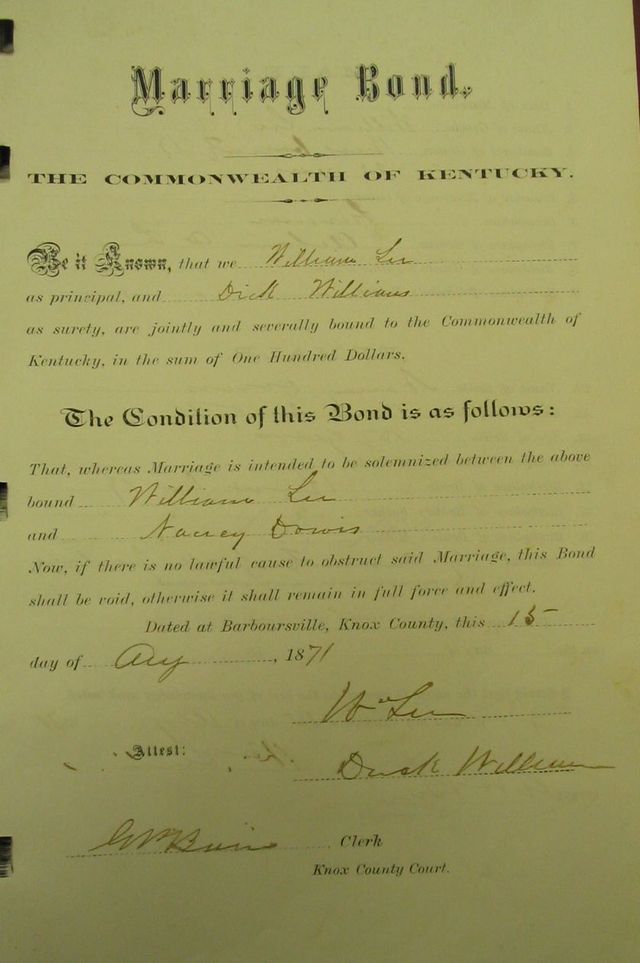 Marriage Bond.
THE COMMONWEALTH OF KENTUCKY.
Be it Known, that we William Lee
as principal, and Dick Williams
as surety, are jointly and severally bound to the Commonwealth of
Kentucky, in the sum of One Hundred Dollars.
The Condition of this Bond is as follows:
That, whereas Marriage is intended to be solemnized between the above
bound William Lee
and Nancy Dowis
Now, if there is no lawful cause to obstruct said Marriage, this Bond
shall be void, otherwise it shall remain in full force and effect.
Dated at Barboursville, Knox County, this 15
day of Aug, 1871
Wm Lee
Attest:
Dick Williams
Clerk
Knox County Court.